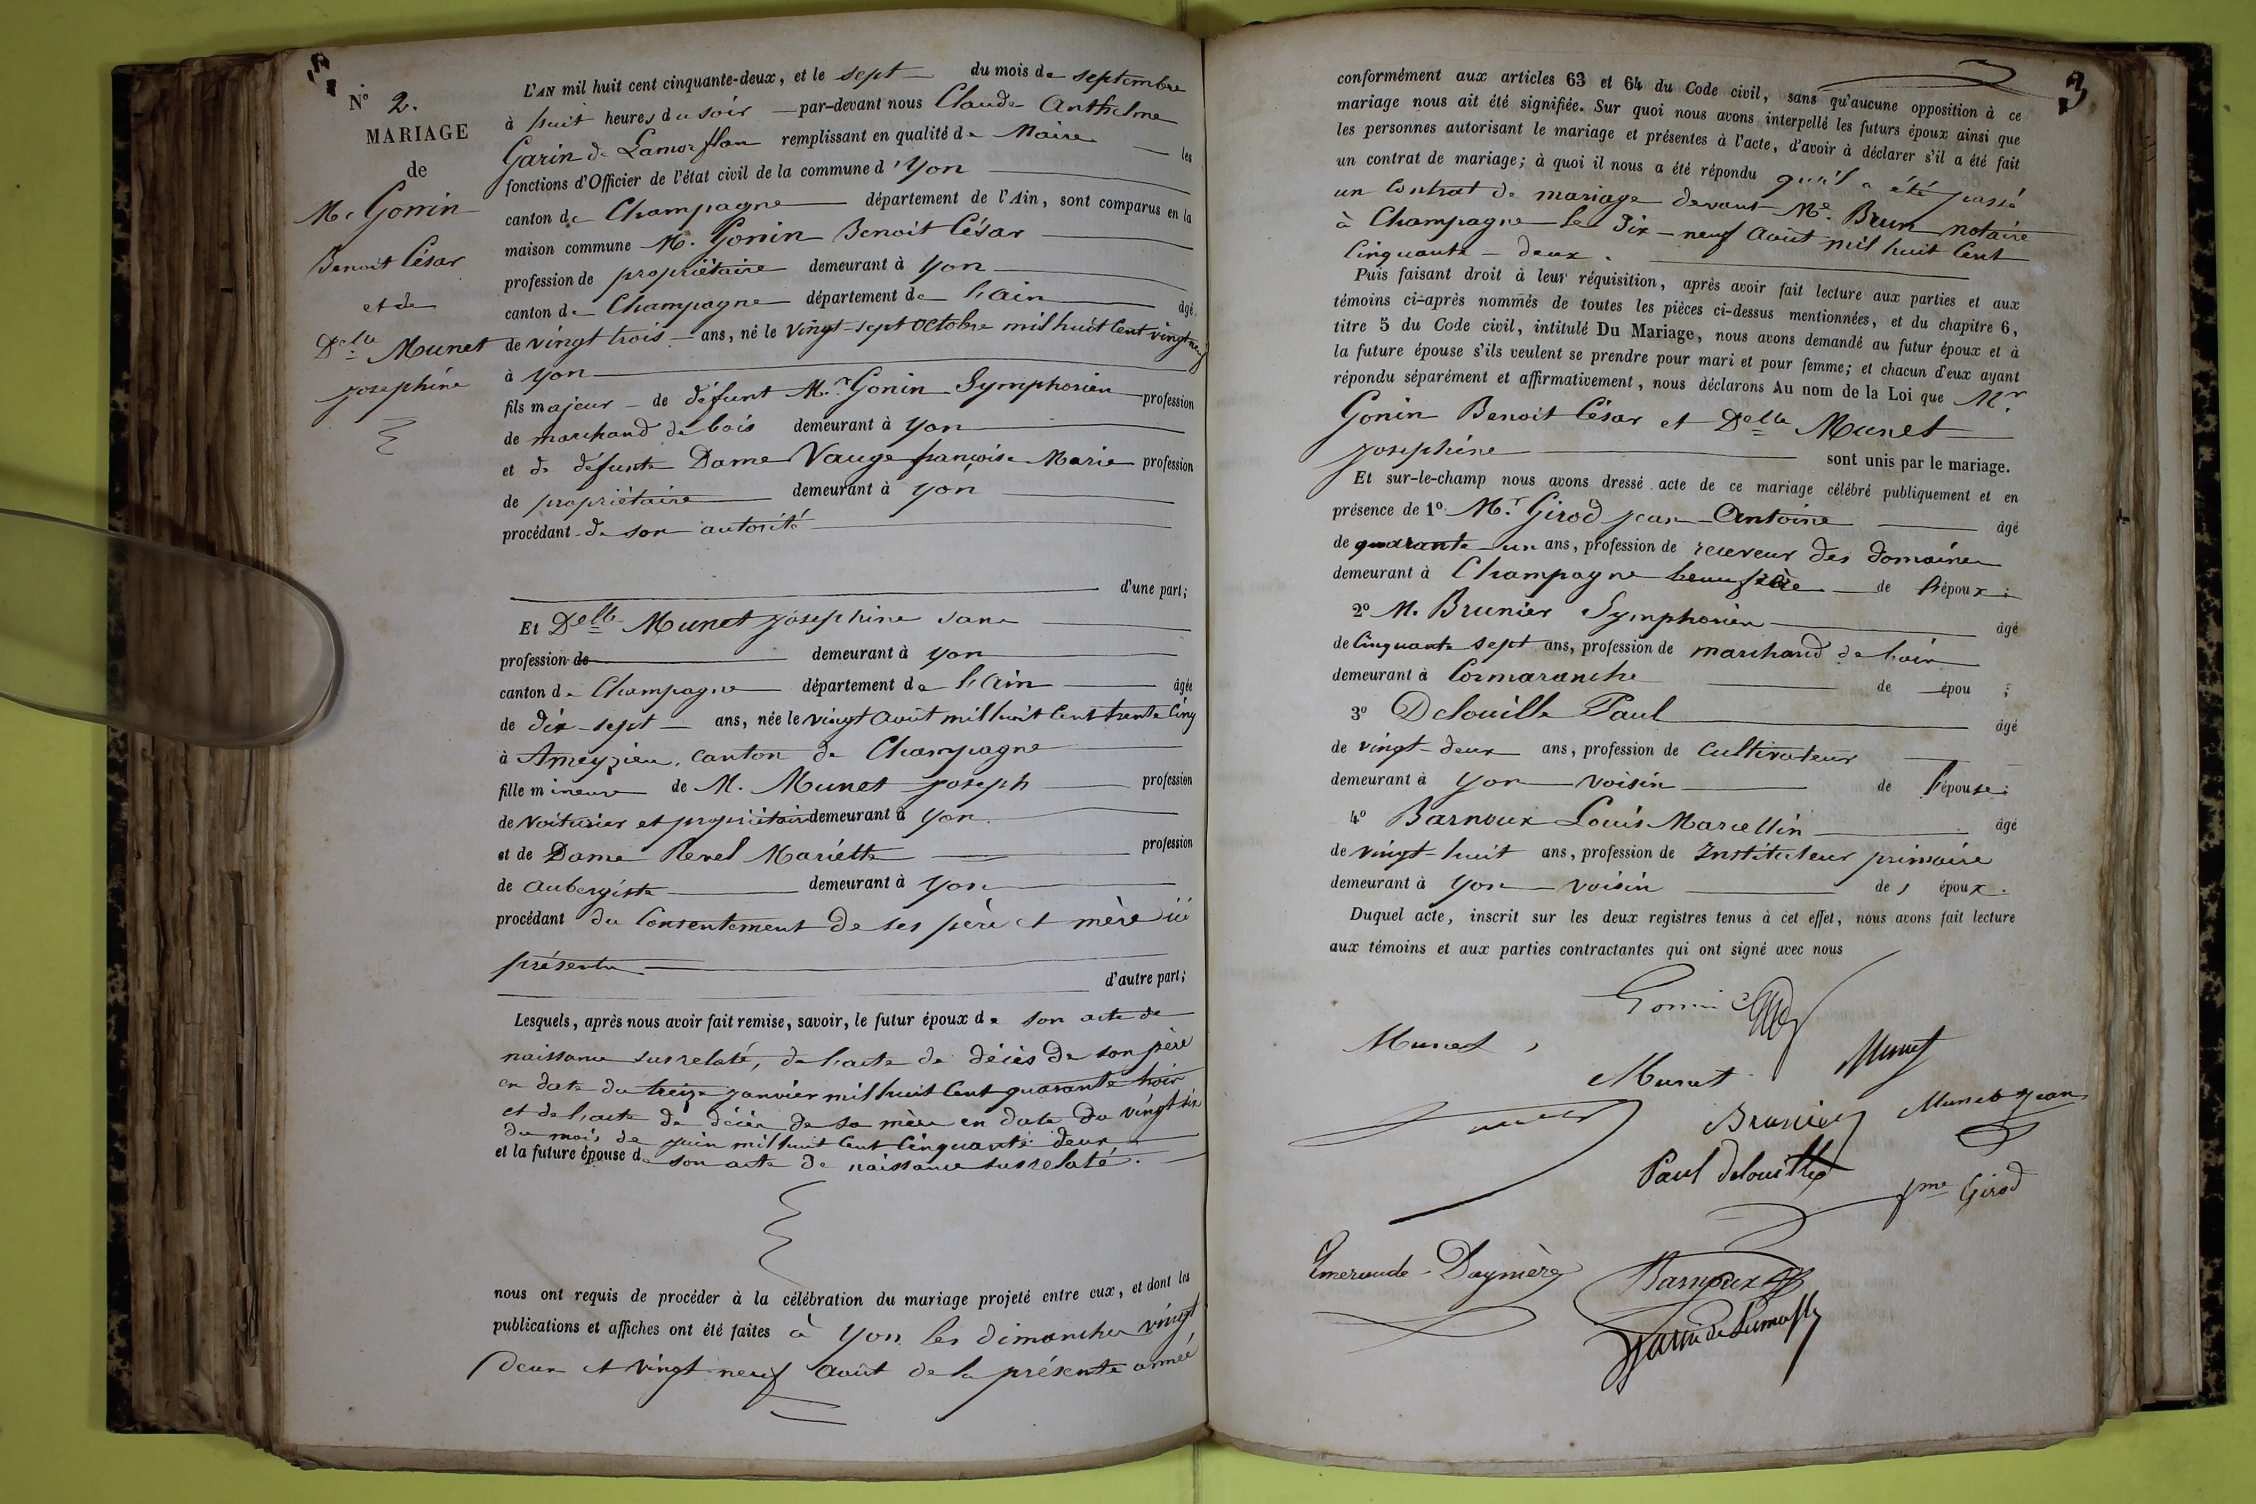 N° 2.
MARIAGE
de
Mr Gonin
Benoit César
et de
Delle Munet
josephine
L'AN mil huit cent cinquante-deux, et le sept du mois de septembre
à huit heures du soir par-devant nous Claude Anthelme
Garin de Lamorflan remplissant en qualité de Maire les
fonctions d'Officier de l'état civil de la commune d'yon
canton de Champagne département de l'Ain, sont comparus en la
maison commune M. Gonin Benoit César
profession de propriétaire demeurant à yon
canton de Champagne département de l'ain âgé
de vingt trois ans, né le vingt-sept octobre mil huit cent vingt neuf
à yon
fils majeur de défunt Mr. Gonin Symphorien profession
de marchand de bois demeurant à yon
et de défunte Dame Vauge françoise Marie profession
de propriétaire demeurant à yon
procédant de son autorité
d'une part;
Et Delle Munet josephine sans
profession de demeurant à yon
canton de Champagne département de l'ain âgée
de dix-sept ans, née le vingt août mil huit cent trente cinq
à Ameyzieu, canton de Champagne
fille mineure de M. Munet joseph profession
de voiturier et propriétaire demeurant à yon
et de Dame Revel Mariette profession
de aubergiste demeurant à yon
procédant du consentement de ses père et mère ici
présents
d'autre part;
Lesquels, après nous avoir fait remise, savoir, le futur époux de son acte de
naissance susrelaté, de l'acte de décès de son père
en date du treize janvier mil huit cent quarante trois
et de l'acte de décès de sa mère en date du vingt six
du mois de juin mil huit cent cinquante deux
et la future épouse de son acte de naissance susrelaté.
nous ont requis de procéder à la célébration du mariage projeté entre eux, et dont les
publications et affiches ont été faites à yon les dimanches vingt
deux et vingt neuf août de la présente année
3
conformément aux articles 63 et 64 du Code civil, sans qu'aucune opposition à ce
mariage nous ait été signifiée. Sur quoi nous avons interpellé les futurs époux ainsi que
les personnes autorisant le mariage et présentes à l'acte, d'avoir à déclarer s'il a été fait
un contrat de mariage; à quoi il nous a été répondu qu'il a été passé
un contrat de mariage devant Me. Brun notaire
à Champagne le dix-neuf août mil huit cent
cinquante-deux.
Puis faisant droit à leur réquisition, après avoir fait lecture aux parties et aux
témoins ci-après nommés de toutes les pièces ci-dessus mentionnées, et du chapitre 6,
titre 5 du Code civil, intitulé Du Mariage, nous avons demandé au futur époux et à
la future épouse s'ils veulent se prendre pour mari et pour femme; et chacun d'eux ayant
répondu séparément et affirmativement, nous déclarons Au nom de la Loi que Mr.
Gonin Benoit César et Delle Munet
josephine sont unis par le mariage.
Et sur-le-champ nous avons dressé acte de ce mariage célébré publiquement et en
présence de 1° Mr Girod jean Antoine âgé
de quarante-un ans, profession de receveur des domaines
demeurant à Champagne beaufrère de l'époux;
2° M. Brunier Symphorien âgé
de cinquante sept ans, profession de marchand de bois
demeurant à Cormaranche de épou ;
3° Delouille Paul âgé
de vingt-deux ans, profession de cultivateur
demeurant à yon voisin de l'épouse;
4° Barnoux Louis Marcellin âgé
de vingt-huit ans, profession de Instituteur primaire
demeurant à yon voisin des époux.
Duquel acte, inscrit sur les deux registres tenus à cet effet, nous avons fait lecture
aux témoins et aux parties contractantes qui ont signé avec nous
Gonin
Munet
Munet
Munet
Brunier
Munet Jean
Paul delouille
fme Girod
Emeraude Daynière
Barnoux
Garin de Lamorfl